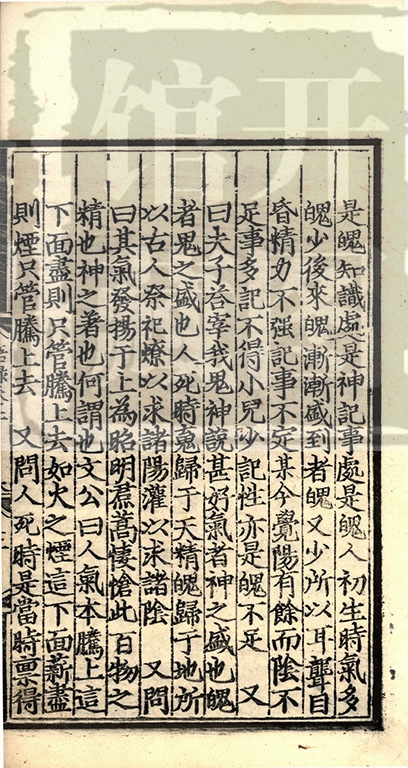 是魄知識處是神記事處是魄人初生時氣多
魄少後來魄漸漸盛到老魄又少所以耳聾目
昏精力不强記事不定某今覺陽有餘而陰不
足事多記不得小兒少記性亦是魄不足　又
曰夫子荅宰我鬼神說甚好氣者神之盛也魄
者鬼之盛也人死時魂歸于天精魄歸于地所
以古人祭祀燎以求諸陽灌以求諸陰　又問
曰其氣發揚于上為昭明焄蒿悽愴此百物之
精也神之著也何謂也文公曰人氣本騰上這
下面盡則只管騰上去如火之煙這下面薪盡
則煙只管騰上去　又問人死時是當時禀得